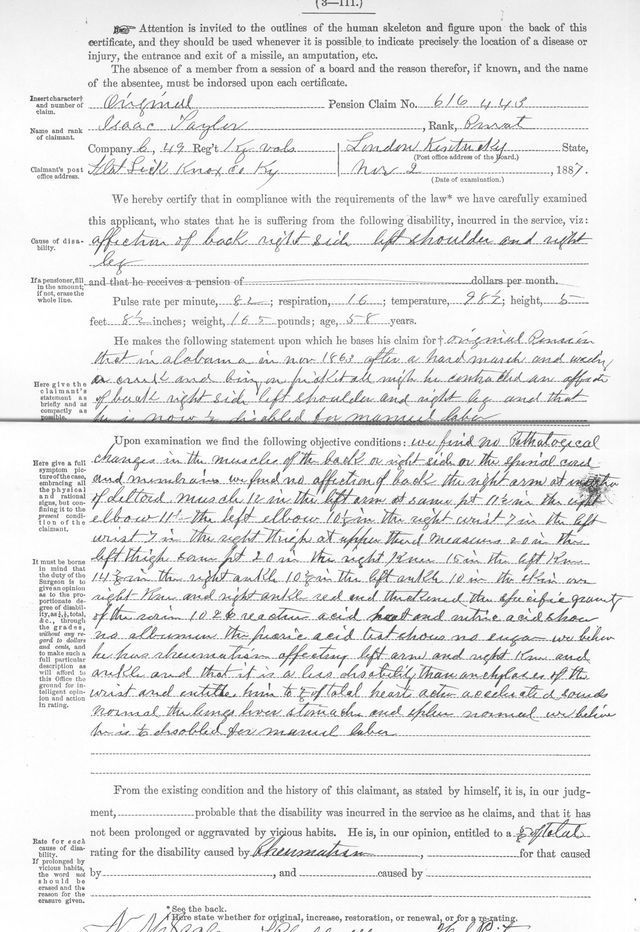 (3—111.)
☞ Attention is invited to the outlines of the human skeleton and figure upon the back of this
certificate, and they should be used whenever it is possible to indicate precisely the location of a disease or
injury, the entrance and exit of a missile, an amputation, etc.
The absence of a member from a session of a board and the reason therefor, if known, and the name
of the absentee, must be indorsed upon each certificate.
Insert character†
and number of
claim.
Original Pension Claim No. 616 443
Name and rank
of claimant.
Isaac Taylor, Rank, Privat
Company C, 49 Reg't Ky vols London Kentucky State,
(Post office address of the Board.)
Claimant's post
office address.
Flat Lick Knox Co Ky Nov 2, 1887.
(Date of examination.)
We hereby certify that in compliance with the requirements of the law* we have carefully examined
this applicant, who states that he is suffering from the following disability, incurred in the service, viz:
Cause of disa-
bility.
affection of back right side left shoulder and right
leg
If a pensioner, fill
in the amount;
if not, erase the
whole line.
and that he receives a pension of dollars per month.
Pulse rate per minute, 82; respiration, 16; temperature, 98½; height, 5
feet 8½ inches; weight, 165 pounds; age, 58 years.
He makes the following statement upon which he bases his claim for† original Pension
that in alabama in nov 1863 after a hard march and wading
a creek and being on picket all nigh he contracted an
of back right side left shoulder and right leg and that
he is now disabled for manuel labor
Here give the
claimant's
statement as
briefly and as
compactly as
possible.
Upon examination we find the following objective conditions: we find no Pathalogical
changes in the muscles of the back or right side or the spinal cord
and membrans we find no affection of back the right arm at
of deltoid muscle 12 in the left arm at same pt 11½ in the right
elbow 11 the left elbow 10½ in the right wrist 7 in the left
wrist 7 in the right thigh at upper third measures 20 in the
left thigh same pt 20 in the right Knee 15 in the left Knee
14½ in the right ankle 10½ in the left ankle 10 in the skin over
right Knee and right ankle red and thickened the specific gravity
of the 102 reaction acid heat and nitric acid show
no albumen the picric acid test shows no sugar we believe
he has rheumatism affecting left arm and right Knee and
ankle and that it is a less disability than anchylosis of the
wrist and entitle him to of total heart action accelerated sounds
normal the lungs liver stomach and spleen normal we believe
he is disabled for manuel labor
Here give a full
symptom pic-
ture of the case,
embracing all
the physical
and rational
signs, but con-
fining it to the
present condi-
tion of the
claimant.
It must be borne
in mind that
the duty of the
Surgeon is to
give an opinion
as to the pro-
portionate de-
gree of disabil-
ity, as ¼, ½, total,
&c., through
the grades,
without any re-
gard to dollars
and cents, and
to make such a
full particular
description as
will afford to
this Office the
ground for in-
telligent opin-
ion and action
in rating.
From the existing condition and the history of this claimant, as stated by himself, it is, in our judg-
ment, probable that the disability was incurred in the service as he claims, and that it has
not been prolonged or aggravated by vicious habits. He is, in our opinion, entitled to a of total
rating for the disability caused by Rheumatism, for that caused
by , and caused by
Rate for each
cause of disa-
bility.
If prolonged by
vicious habits,
the word not
should be
erased and the
reason for the
erasure given.
* See the back.
† Here state whether for original, increase, restoration, or renewal, or for a re-rating.